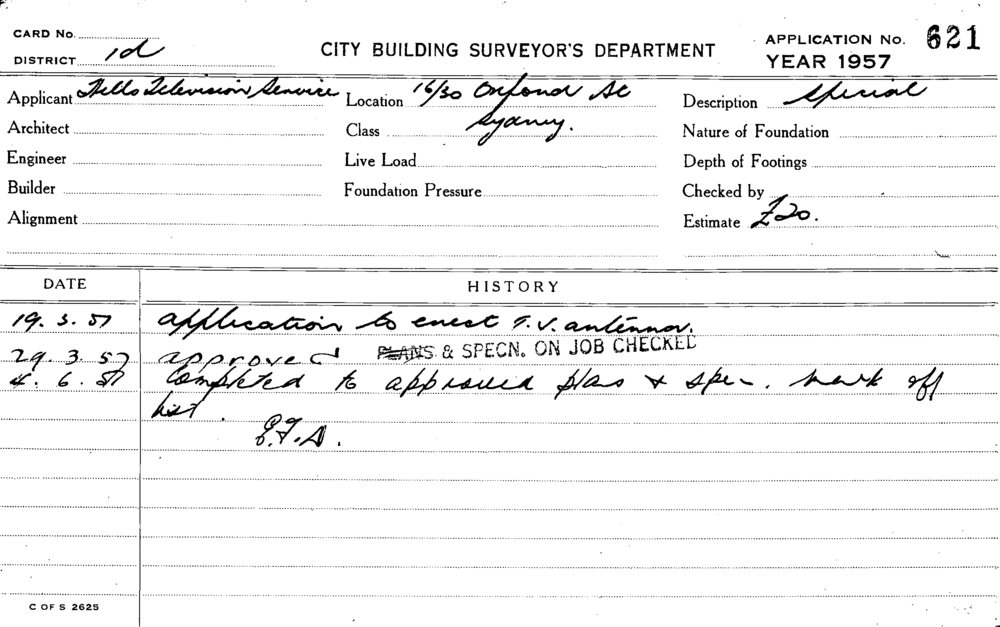 CARD No.
DISTRICT 1d
CITY BUILDING SURVEYOR'S DEPARTMENT
APPLICATION No. 621
YEAR 1957
Applicant Television Service Location 16/30 Oxford St Description Special
Architect Class Sydney. Nature of Foundation
Engineer Live Load Depth of Footings
Builder Foundation Pressure Checked by
Alignment Estimate £20.
DATE HISTORY
19. 3. 57 application to erect T.V. antenna.
29. 3. 57 approved PLANS & SPECN. ON JOB CHECKED
4. 6. 57 Completed to approved plans & spec. mark off
list.
C OF S 2625